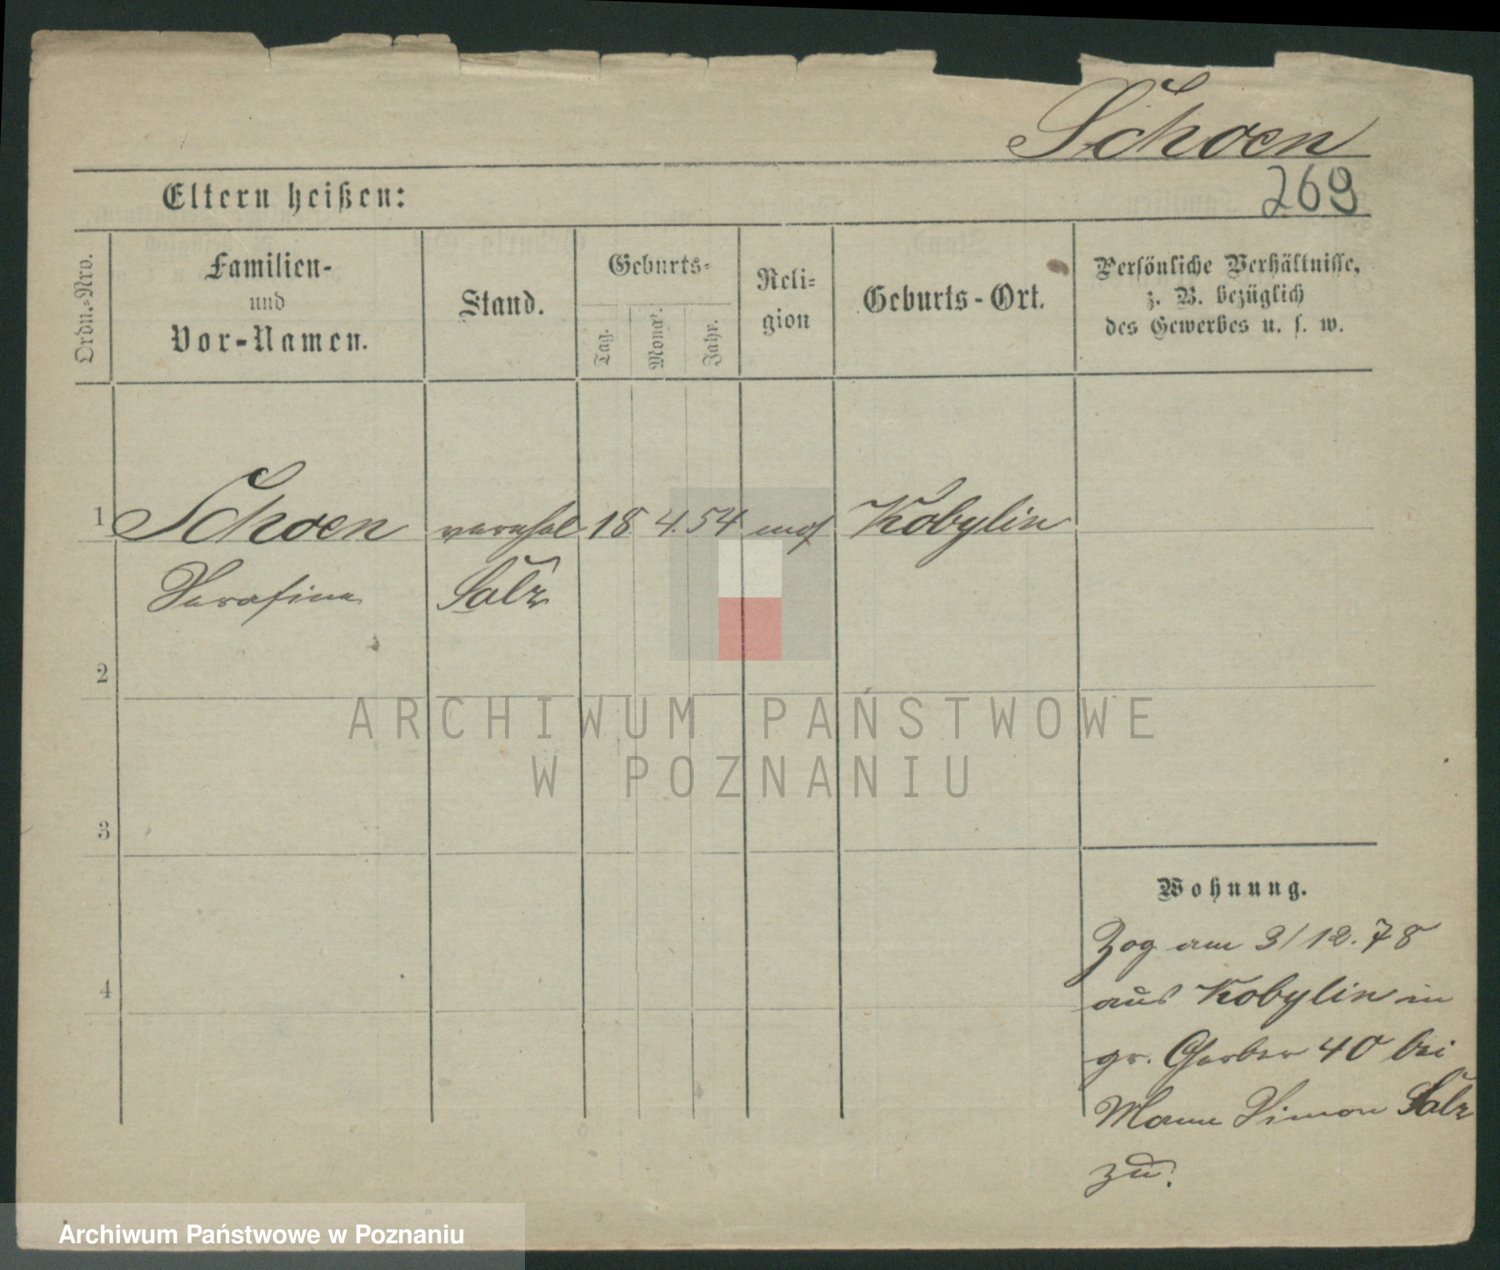 Schoen
269
Eltern heißen:
Ordn.-Nro.
Familien-
und
Vor-Namen.
Stand.
Geburts-
Tag.
Monat.
Jahr.
Reli-
gion
Geburts-Ort.
Persönliche Verhältnisse,
z. B. bezüglich
des Gewerbes u. s. w.
1 Schoen verehel 18. 4. 54 mos Kobylin
Serafine Salz
2
ARCHIWUM PAŃSTWOWE
W POZNANIU
3
4
Wohnung.
Zog am 3/12.78
aus Kobylin in
gr. Gerber 40 bei
Mann Simon Salz
zu.
Archiwum Państwowe w Poznaniu